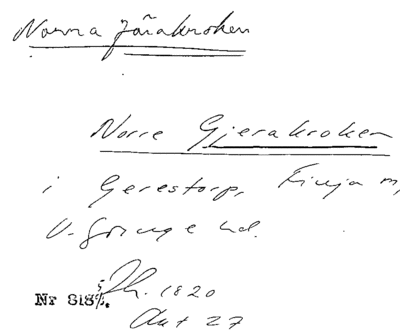 Norra Järakroken
Norre Gjerakroken
i Gerestorp, Finja m,
V. Göinge hd.
Nr 818
1820
27